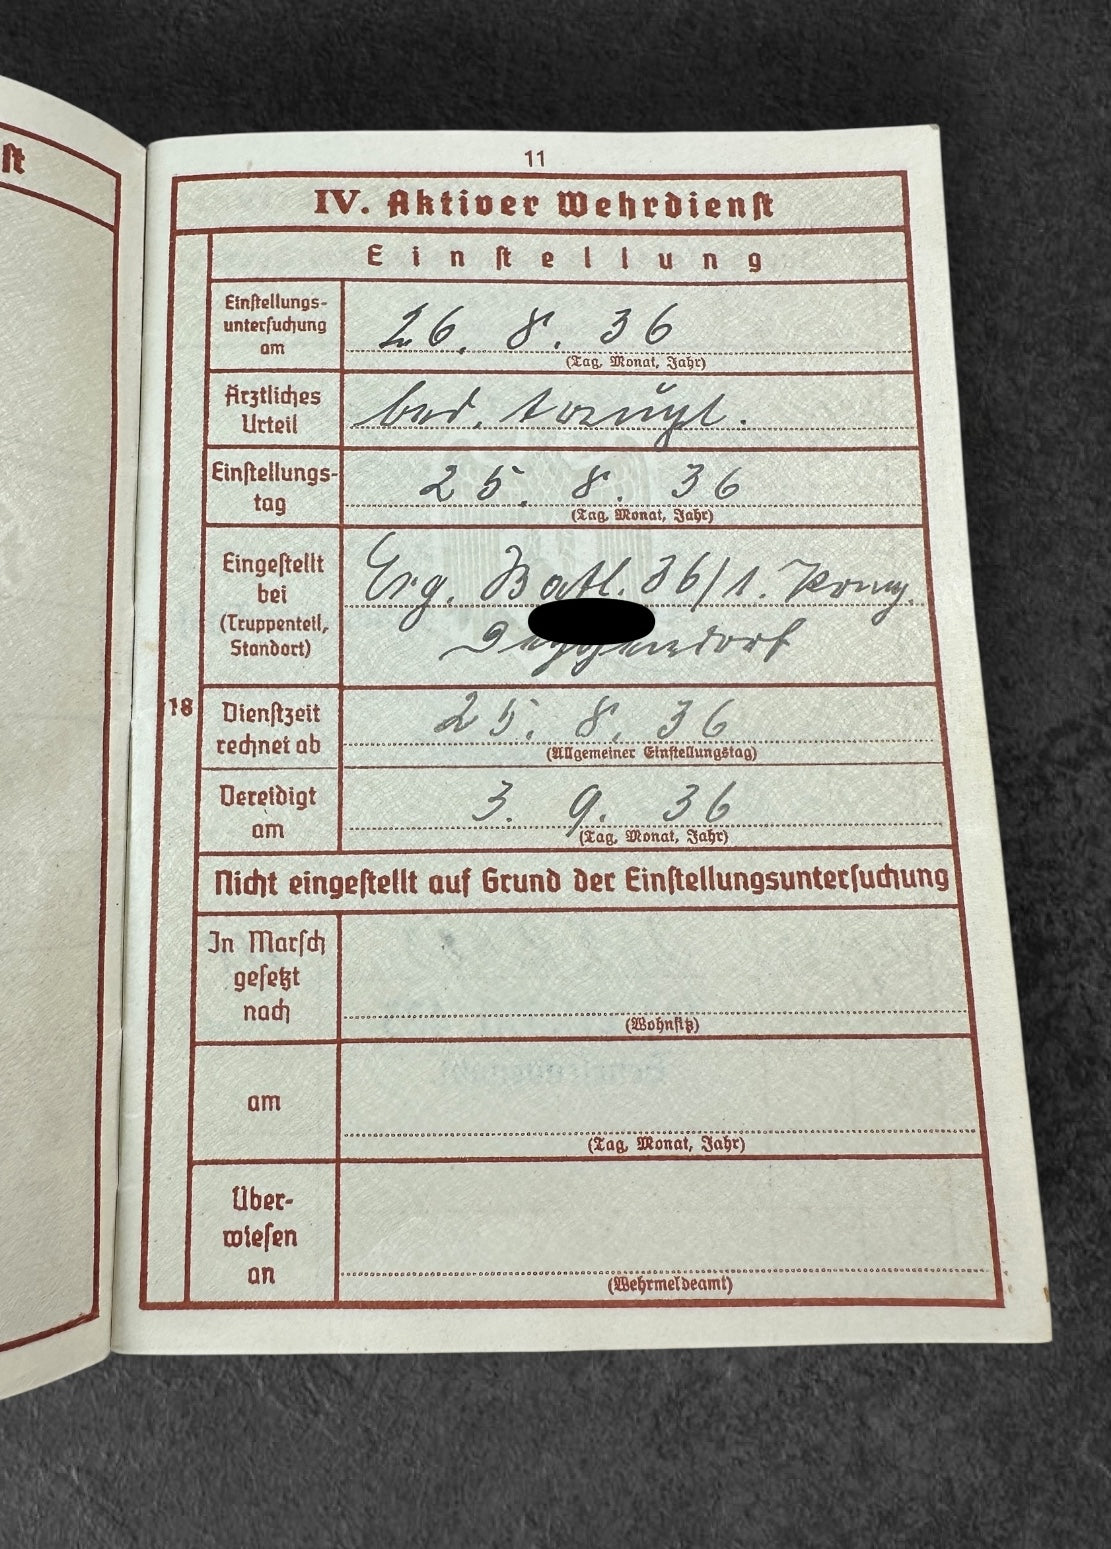 ſt
11
IV. Aktiver Wehrdienſt
Einſtellung
Einſtellungs-
unterſuchung
am
26. 8. 36
(Tag, Monat, Jahr)
Ärztliches
Urteil
bed. taugl.
Einſtellungs-
tag
25. 8. 36
(Tag, Monat, Jahr)
Eingeſtellt
bei
(Truppenteil,
Standort)
Erg. Batl. 36/1. Komp.
Deggendorf
18
Dienſtzeit
rechnet ab
25. 8. 36
(Allgemeiner Einſtellungstag)
Vereidigt
am
3. 9. 36
(Tag, Monat, Jahr)
Nicht eingeſtellt auf Grund der Einſtellungsunterſuchung
In Marſch
geſetzt
nach
(Wohnſitz)
am
(Tag, Monat, Jahr)
Über-
wieſen
an
(Wehrmeldeamt)